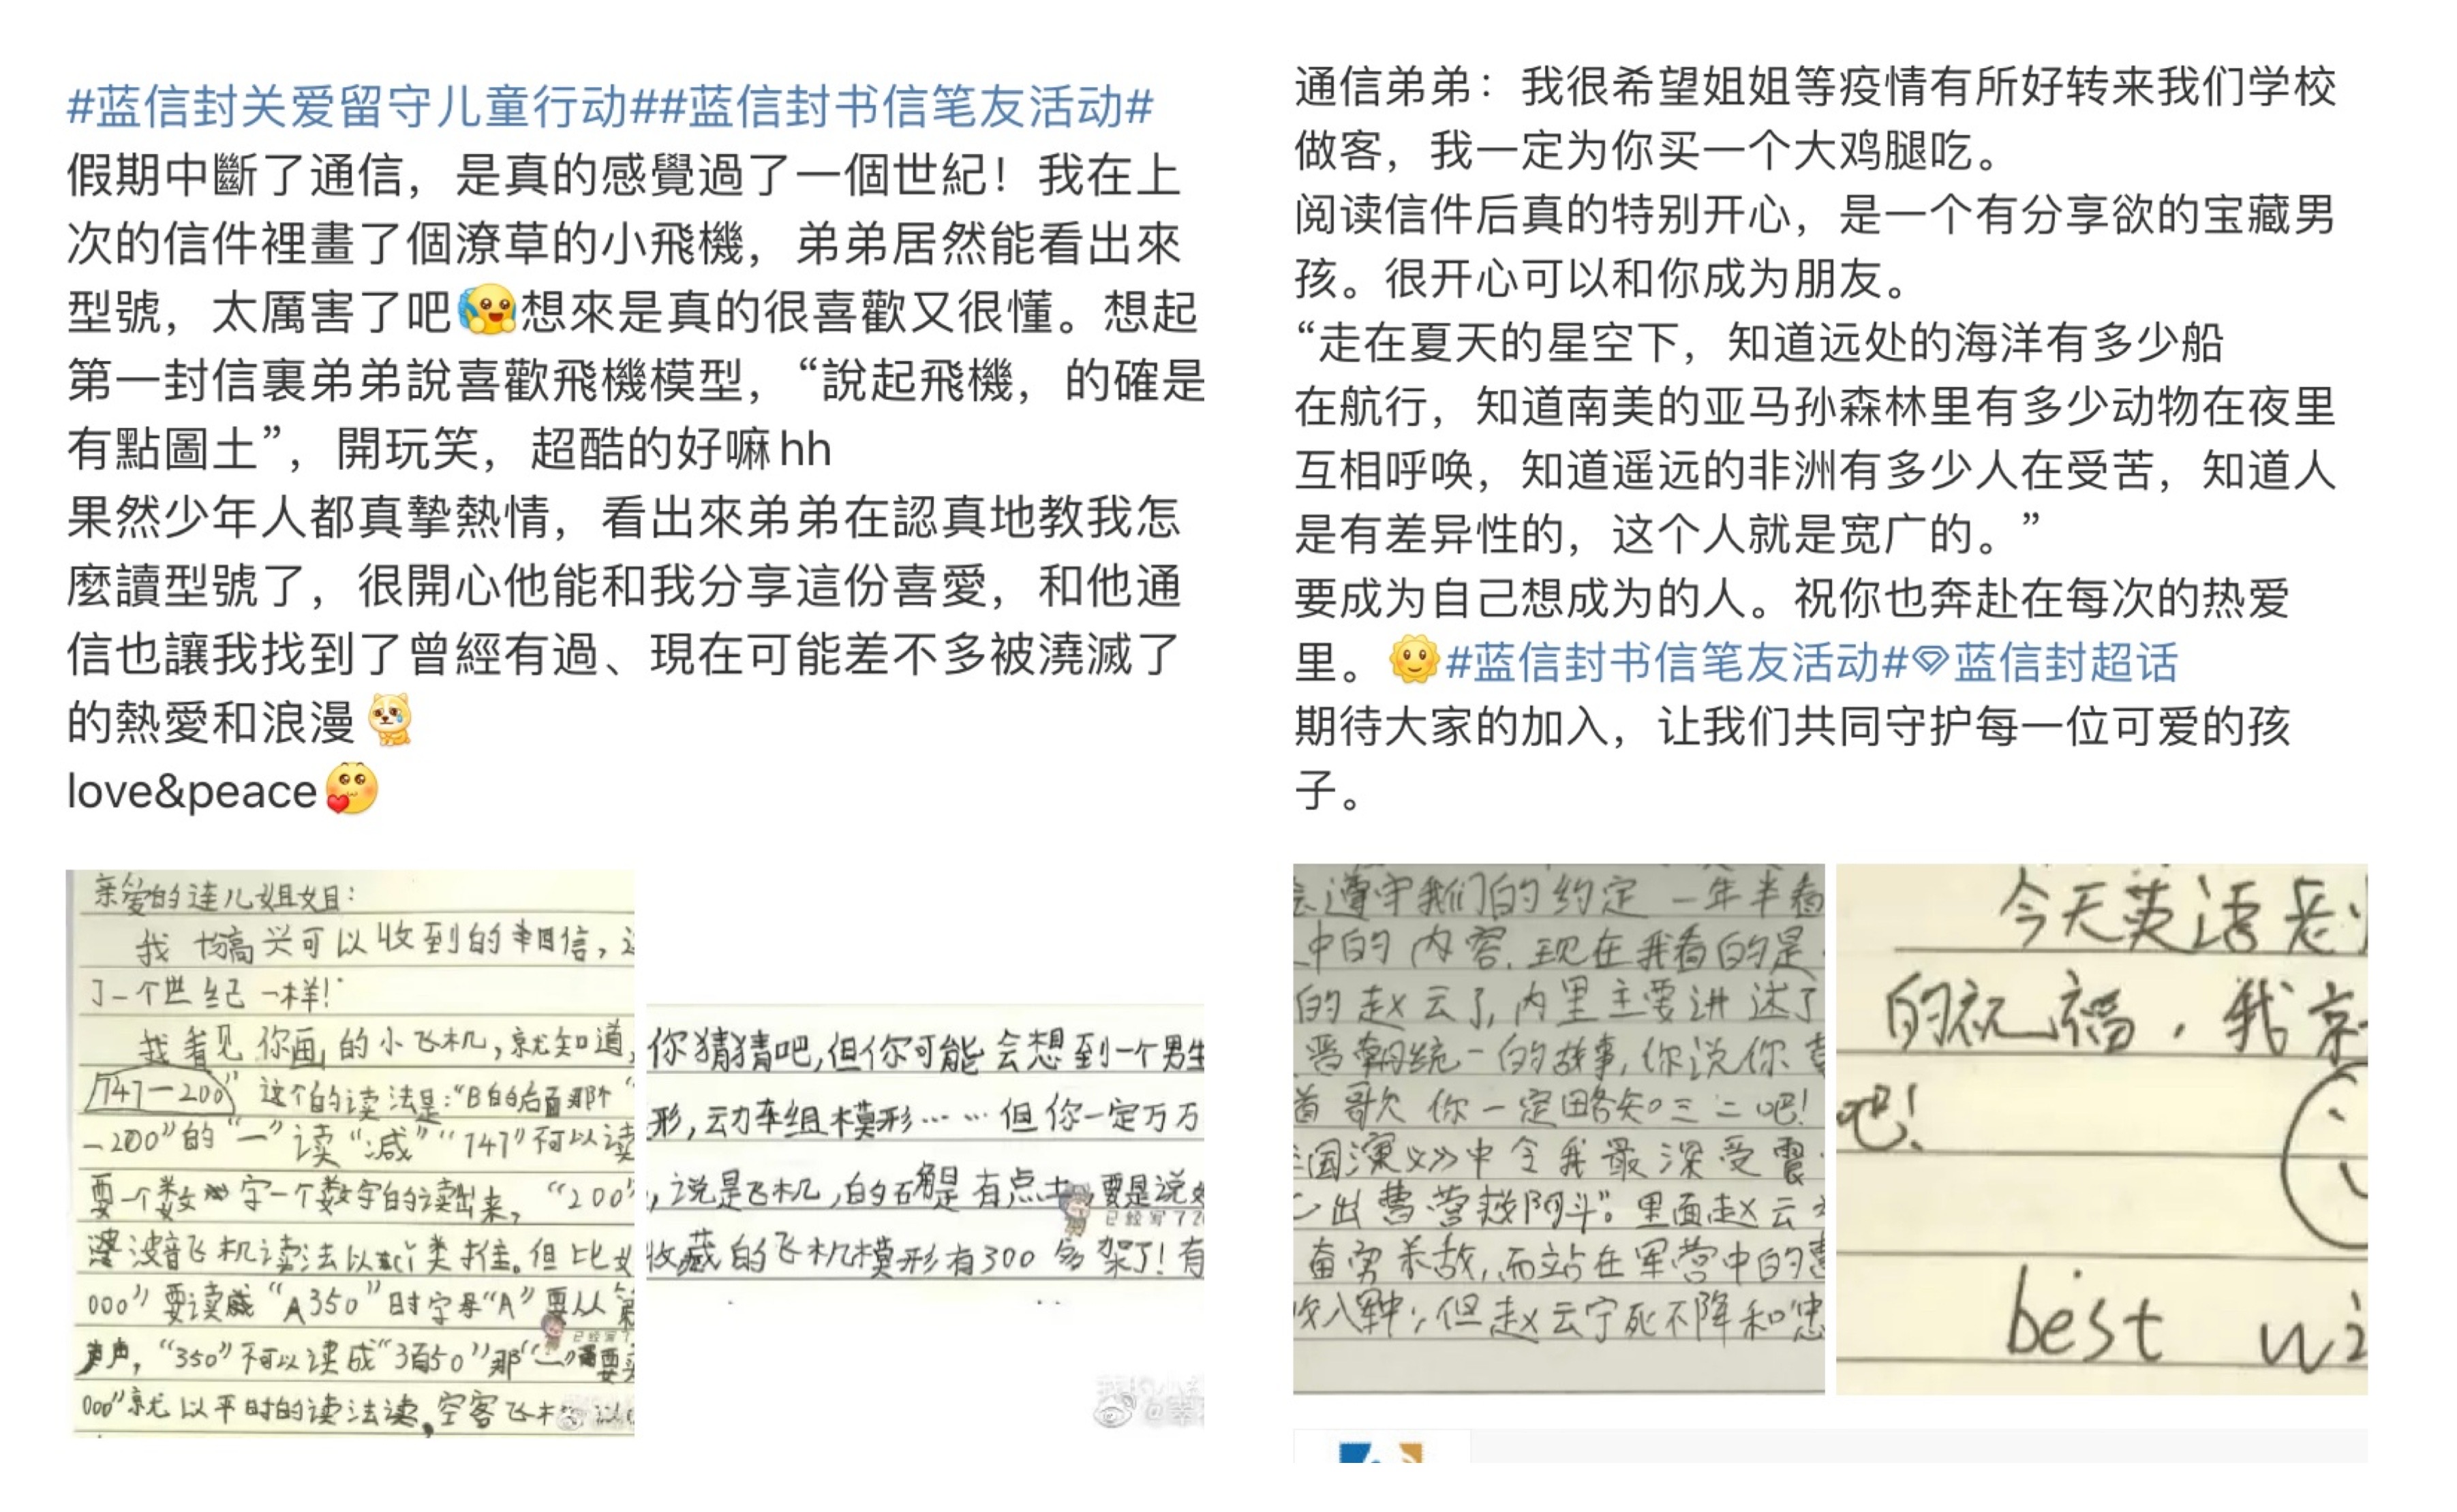 #蓝信封关爱留守儿童行动##蓝信封书信笔友活动#
假期中斷了通信，是真的感覺過了一個世紀！我在上
次的信件裡畫了個潦草的小飛機，弟弟居然能看出來
型號，太厲害了吧想來是真的很喜歡又很懂。想起
第一封信裏弟弟說喜歡飛機模型，“說起飛機，的確是
有點圖土”，開玩笑，超酷的好嘛hh
果然少年人都真摯熱情，看出來弟弟在認真地教我怎
麼讀型號了，很開心他能和我分享這份喜愛，和他通
信也讓我找到了曾經有過、現在可能差不多被澆滅了
的熱愛和浪漫
love&peace
亲爱的涟儿姐姐：
我 高兴可以收到的 信，
了一个世纪一样！
我看见你画的小飞机，就知道，
747—200” 这个的读法是：“B的后面那个
—200”的“—”读“减”“747”可以读
要一个数 字一个数字的读出来，“200”
波音飞机读法以此类推。但比
000”要读成“A350”时字母“A”要从
声，“350”可以读成“3百50”那“—”要
000”就以平时的读法读，空客飞
你猜猜吧，但你可能会想到一个男生
形，动车组模形……但你一定万万
，说是飞机，的确是有点土，要是说
已经写了
收藏的飞机模形有300多架了！有
通信弟弟：我很希望姐姐等疫情有所好转来我们学校
做客，我一定为你买一个大鸡腿吃。
阅读信件后真的特别开心，是一个有分享欲的宝藏男
孩。很开心可以和你成为朋友。
“走在夏天的星空下，知道远处的海洋有多少船
在航行，知道南美的亚马孙森林里有多少动物在夜里
互相呼唤，知道遥远的非洲有多少人在受苦，知道人
是有差异性的，这个人就是宽广的。”
要成为自己想成为的人。祝你也奔赴在每次的热爱
里。#蓝信封书信笔友活动#蓝信封超话
期待大家的加入，让我们共同守护每一位可爱的孩
子。
会遵守我们的约定 一年半看
中的内容.现在我看的是
的赵云了，内里主要讲述了
晋朝统一的故事，你说你喜
首歌你一定略知三二吧！
国演义》中令我最深受震
出曹营救阿斗”。里面赵云
奋勇杀敌，而站在军营中的曹
收入军中；但赵云宁死不降和忠
今天英语老
的祝福，我
吧！
best wi